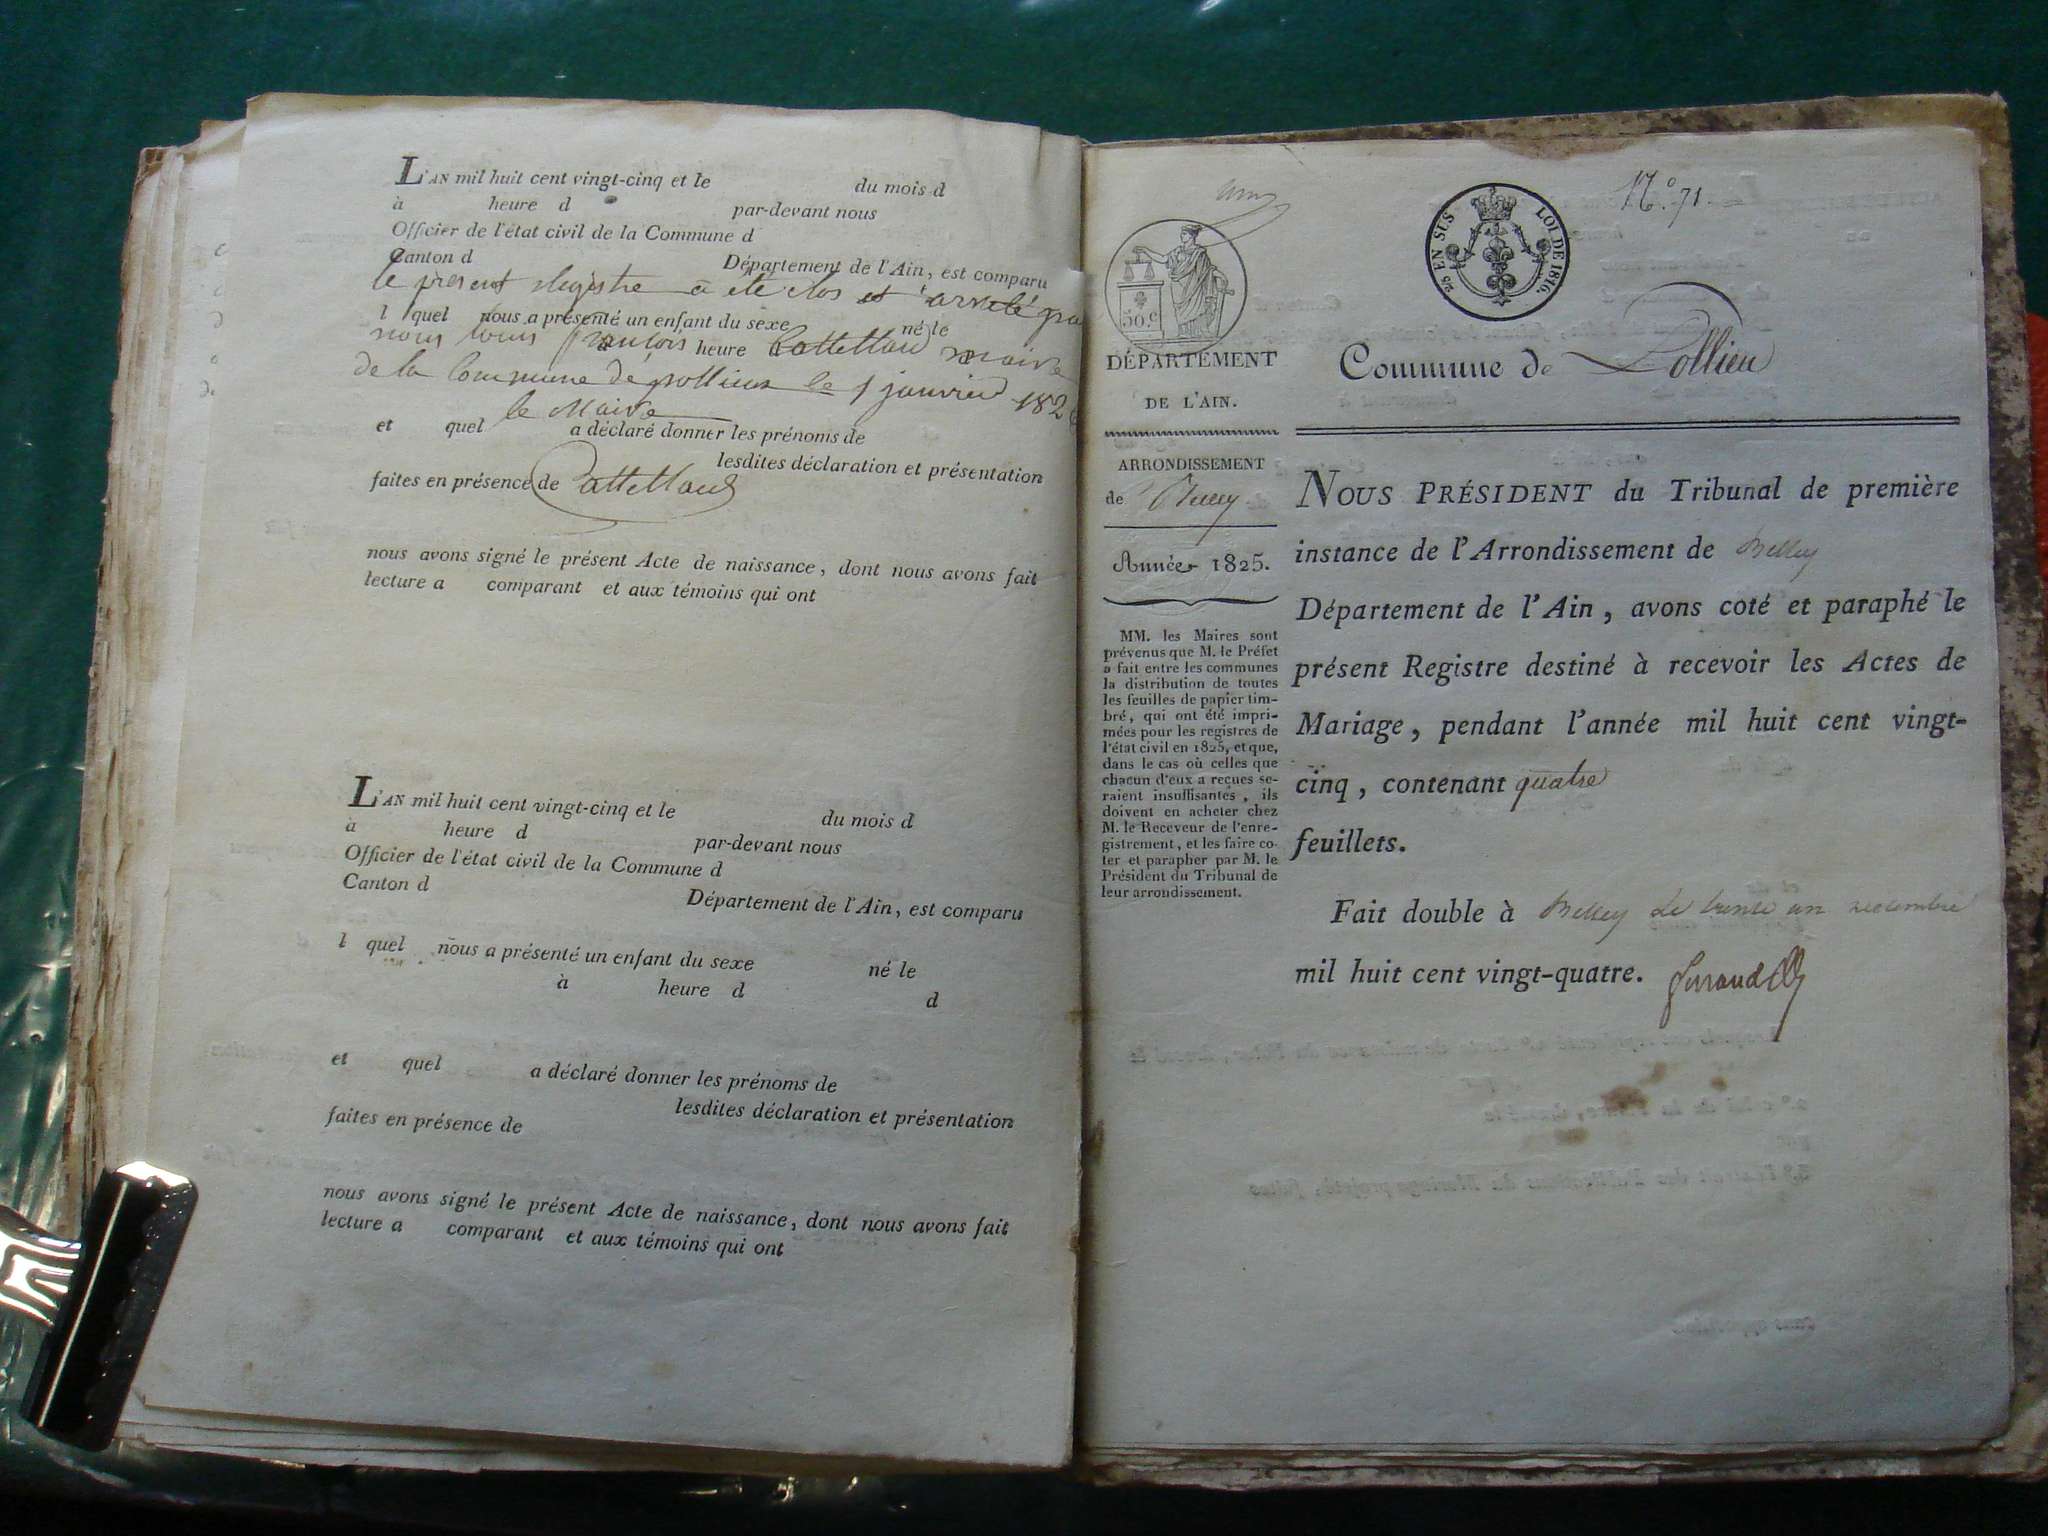 L'AN mil huit cent vingt-cinq et le du mois d
à heure d par-devant nous
Officier de l'état civil de la Commune d
Canton d Département de l'Ain, est comparu
le présent Registre a été clos et arrêté par
l quel nous a présenté un enfant du sexe né le
nous Louis François maire
à heure
de la Commune de pollieu le 1 janvier 182
le Maire
et quel a déclaré donner les prénoms de
lesdites déclaration et présentation
faites en présence de
nous avons signé le présent Acte de naissance, dont nous avons fait
lecture a comparant et aux témoins qui ont
L'AN mil huit cent vingt-cinq et le du mois d
à heure d par-devant nous
Officier de l'état civil de la Commune d
Canton d Département de l'Ain, est comparu
l quel nous a présenté un enfant du sexe né le
à heure d d
et quel a déclaré donner les prénoms de
lesdites déclaration et présentation
faites en présence de
nous avons signé le présent Acte de naissance, dont nous avons fait
lecture a comparant et aux témoins qui ont
N.º 71.
25 EN SUS LOI DE 1816.
50.c
DÉPARTEMENT
DE L'AIN.
ARRONDISSEMENT
de Belley
Année 1825.
MM. les Maires sont
prévenus que M. le Préfet
a fait entre les communes
la distribution de toutes
les feuilles de papier tim-
bré, qui ont été impri-
mées pour les registres de
l'état civil en 1825, et que,
dans le cas où celles que
chacun d'eux a reçues se-
raient insuffisantes, ils
doivent en acheter chez
M. le Receveur de l'enre-
gistrement, et les faire co-
ter et parapher par M. le
Président du Tribunal de
leur arrondissement.
Commune de Pollieu
NOUS PRÉSIDENT du Tribunal de première
instance de l'Arrondissement de Belley
Département de l'Ain, avons coté et paraphé le
présent Registre destiné à recevoir les Actes de
Mariage, pendant l'année mil huit cent vingt-
cinq, contenant quatre
feuillets.
Fait double à Belley le trente un decembre
mil huit cent vingt-quatre.